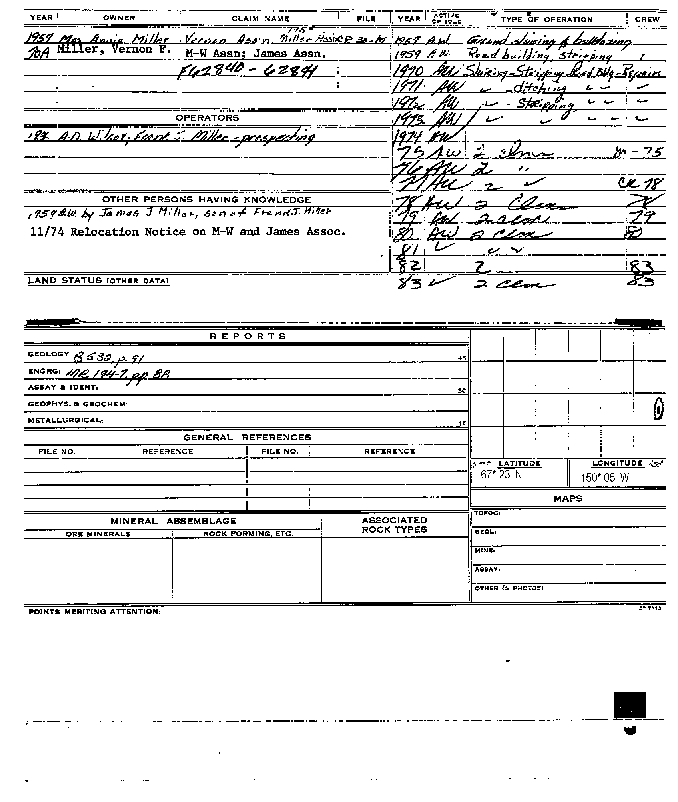 YEAR OWNER CLAIM NAME FILE YEAR ACTIVE OR IDLE TYPE OF OPERATION CREW
1957 Mrs Annie Miller Vernon Ass'n. Miller Assn 1958 1958 A.W. Ground sluicing & bulldozing
70A Miller, Vernon F. M-W Assn; James Assn. 1959 A.W. Road building, stripping
F62840 - 62844 1970 AW Sluicing-Stripping Road Bldg-Repairs
1971 AW " -ditching " "
1972 AW " -Stripping " "
OPERATORS 1973 AW " " "
A.D. Wilcox, Frank J. Miller - prospecting 1974 AW
75 AW 2 - 75
76 AW 2 "
77 AW 2 " 78
OTHER PERSONS HAVING KNOWLEDGE 78 AW 2 Clms
1959 A.W. by James J Miller, son of Frank J. Miller 79 AW 2 clms 79
11/74 Relocation Notice on M-W and James Assoc. 80 AW 2 clms 80
81 " " "
82 2 83
LAND STATUS (OTHER DATA) 83 " 2 clms 83
REPORTS
GEOLOGY B 532, p. 91
ENGRG: MR 194-7, pp 8A
ASSAY & IDENT:
GEOPHYS. & GEOCHEM:
METALLURGICAL:
GENERAL REFERENCES
FILE NO. REFERENCE FILE NO. REFERENCE
LATITUDE LONGITUDE
67° 23 N 150° 05 W
MAPS
MINERAL ASSEMBLAGE ASSOCIATED ROCK TYPES
ORE MINERALS ROCK FORMING, ETC.
TOPOG:
GEOL:
MINE:
ASSAY:
OTHER (& PHOTOS)
POINTS MERITING ATTENTION: